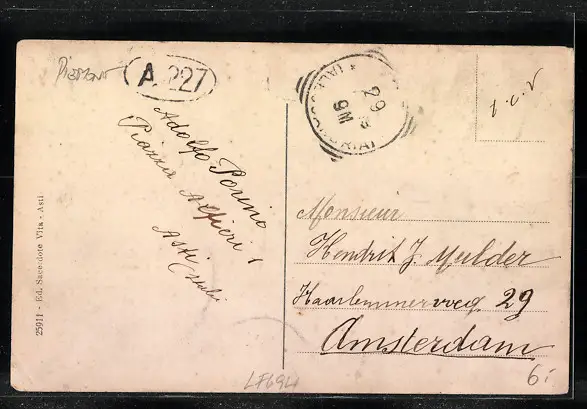 Piemont
A. 227
29 6
t.c.v
Adolfo Porino
Piazza Alfieri 1
Asti
Monsieur
Hendrik J. Mulder
Haarlemmerweg 29
Amsterdam
25911 - Ed. Sacerdote Vita - Asti
6.-